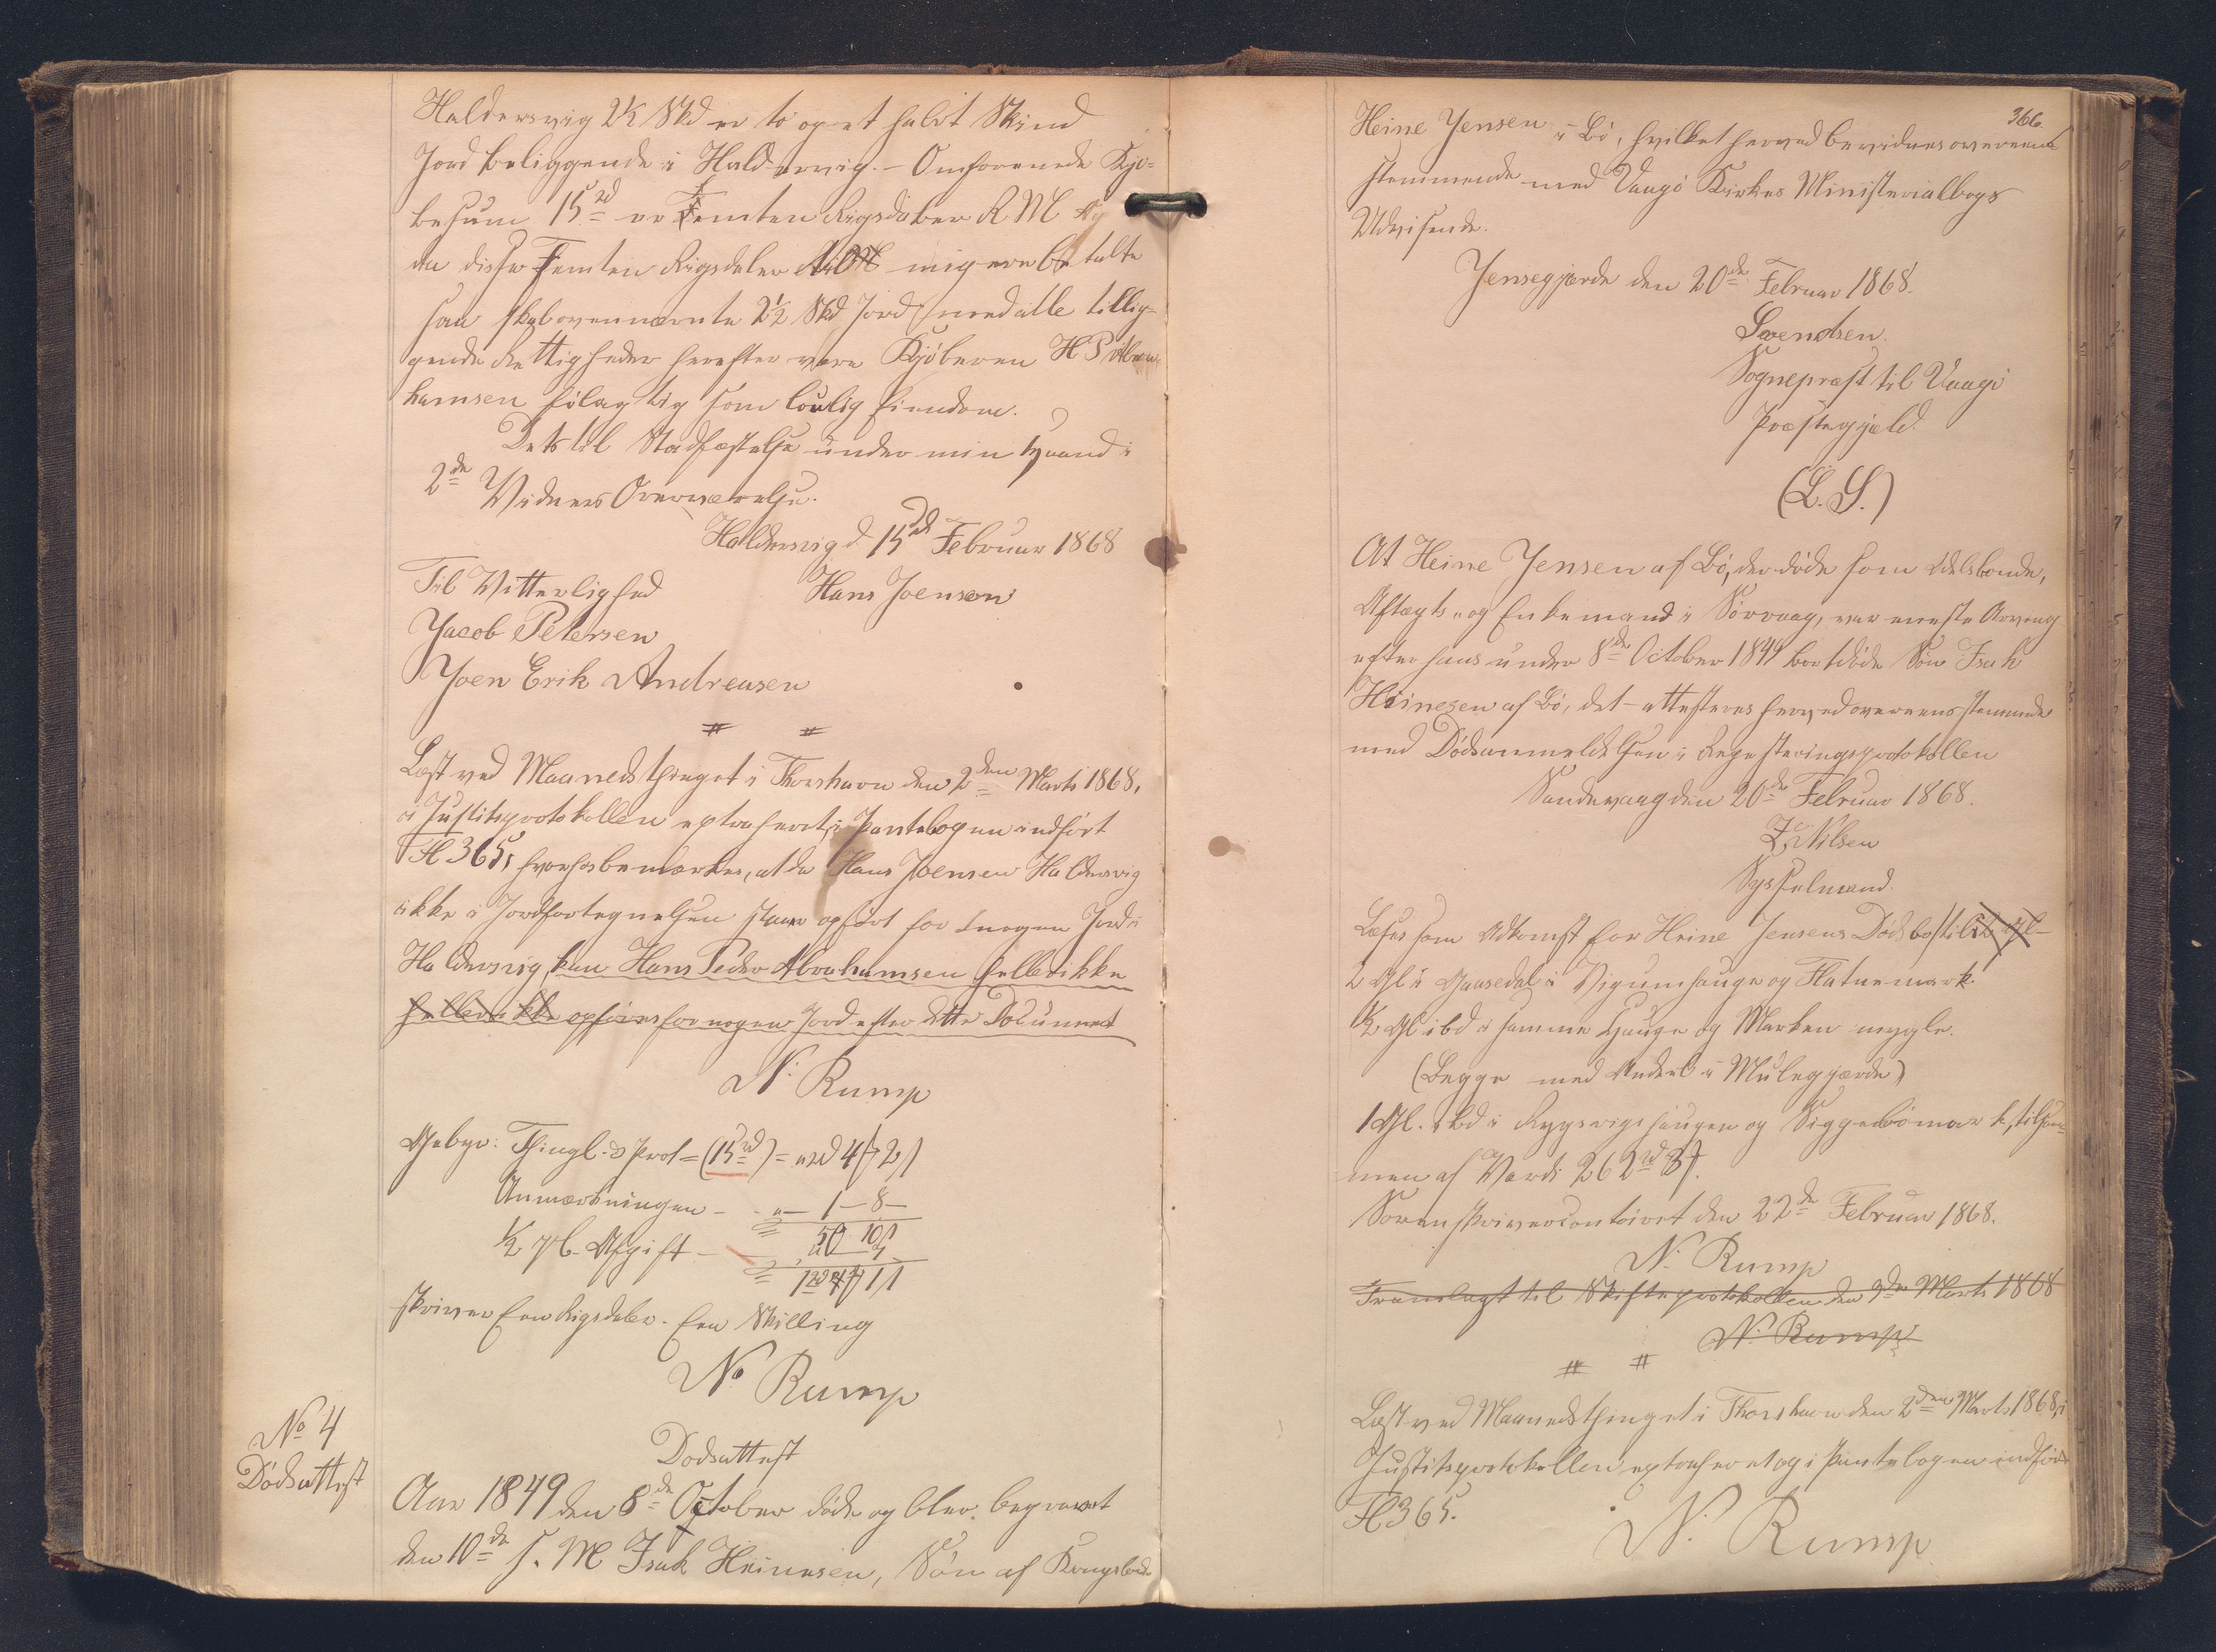 Haldersvig 2½ Skd er to og et halvt Skind
Jord beliggende i Haldersvig. – Omforenede Kjø-
besum 15 rd er Femten Rigsdaler R M Og
da disse Femten Rigsdaler mig ere betalte
saa skal ovennævnte 2½ Skd Jord med alle tillig-
gende Rettigheder herefter være Kjøberen H P Abra-
hamsen følagtig som lovlig Eiendom.
Dets til Stadfæstelse under min Haand i
2de Vidners Overværelse.
Haldersvig d 15de Februar 1868
Til Vitterlighed Hans Joensen
Jacob Petersen
Joen Erik Andreasen
# #
Læst ved Maanedsthinget i Thorshavn den 2den Marts 1868,
i Justitsprotokollen extraheret, i Pantebogen indført
Fl 365, hvorhos bemærkes, at da Hans Joensen Haldersvig
ikke i Jordfortegnelsen staaer opført for nogen Jord i
Haldersvig, kan Hans Peder Abrahamsen heller ikke
heller ikke opføres for nogen Jord efter dette Document
N. Rump
Gebyr: Thingl. & Prot = (15 rd) = 4 2
Anmærkningen – 1 – 8 –
½ pC. Afgift –
skriver Een Rigsdaler. Een Skilling
N. Rump
No 4
Dødsattest
Dødsattest
Aar 1849 den 8de October døde og blev begravet
den 10de s. M Isak Heinesen, Søn af Kongsbonde
366.
Heine Jensen i Bø, hvilket herved bevidnes overeens
stemmende med Vaagø Kirkes Ministerialbogs
Udvisende.
Jensegjærde den 20de Februar 1868.
Svendsen.
Sognepræst til Vaagø
Præstegjæld
(L. S.)
At Heine Jensen af Bø, der døde som Odelsbonde,
Aftægts- og Enkemand i Sørvaag, var eneste Arving
efter hans under 8de October 1849 bortdøde Søn Isak
Heinesen af Bø, det attesteres herved overeensstemmende
med Dødsanmeldelsen i Registeringsprotokollen
Sandevaag den 20de Februar 1868.
Z. Nilsen
Sysselmand.
Læses som Adkomst for Heine Jensens Dødsbo til
2 Gl i Gaasedal i Vigumhauge og Flatnemark.
½ Gl ibd i samme Hauge og Marken mygle.
(Begge med Andeel i Mulegjærde)
1 Gl. ibd i Rygsvigshaugen og Siggebømark, tilsam-
men af Værdi 262 rd 3
Sorenskrivercontoiret den 22de Februar 1868.
N. Rump
Fremlagt til Skifteprotokollen den 9de Marts 1868
N. Rump
# #
Læst ved Maanedsthinget i Thorshavn den 2den Marts 1868, i
Justitsprotokollen extraheret og i Pantebogen indført
Fl 365.
N. Rump